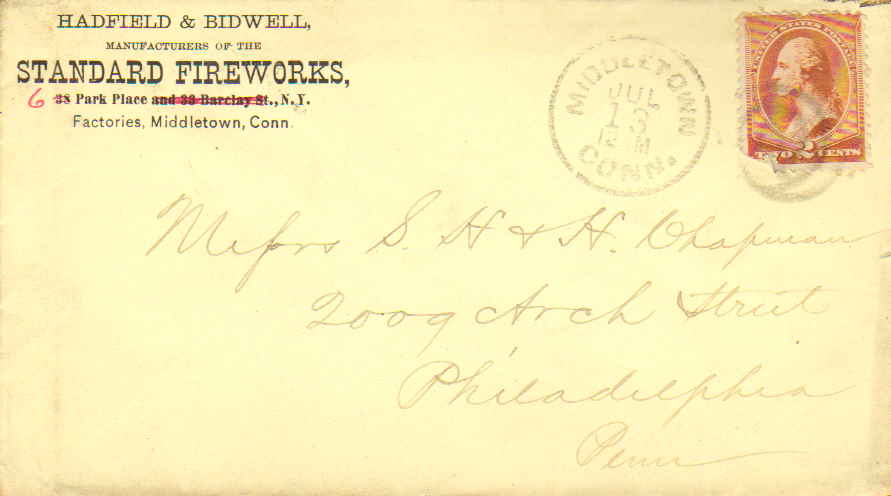 HADFIELD & BIDWELL,
MANUFACTURERS OF THE
STANDARD FIREWORKS,
6 38 Park Place and 33 Barclay St., N.Y.
Factories, Middletown, Conn.
MIDDLETOWN
JUL
13
M
CONN.
UNITED STATES POSTAGE
TWO 2 CENTS
Messrs S. H & H. Chapman
2009 Arch Street
Philadelphia
Penn